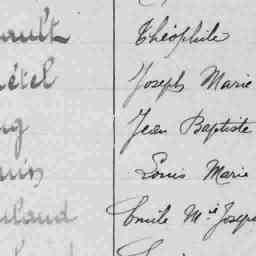 ault Théophile
étel Joseph Marie
g Jean Baptiste
uin Louis Marie
uland Emile M.ie Joseph